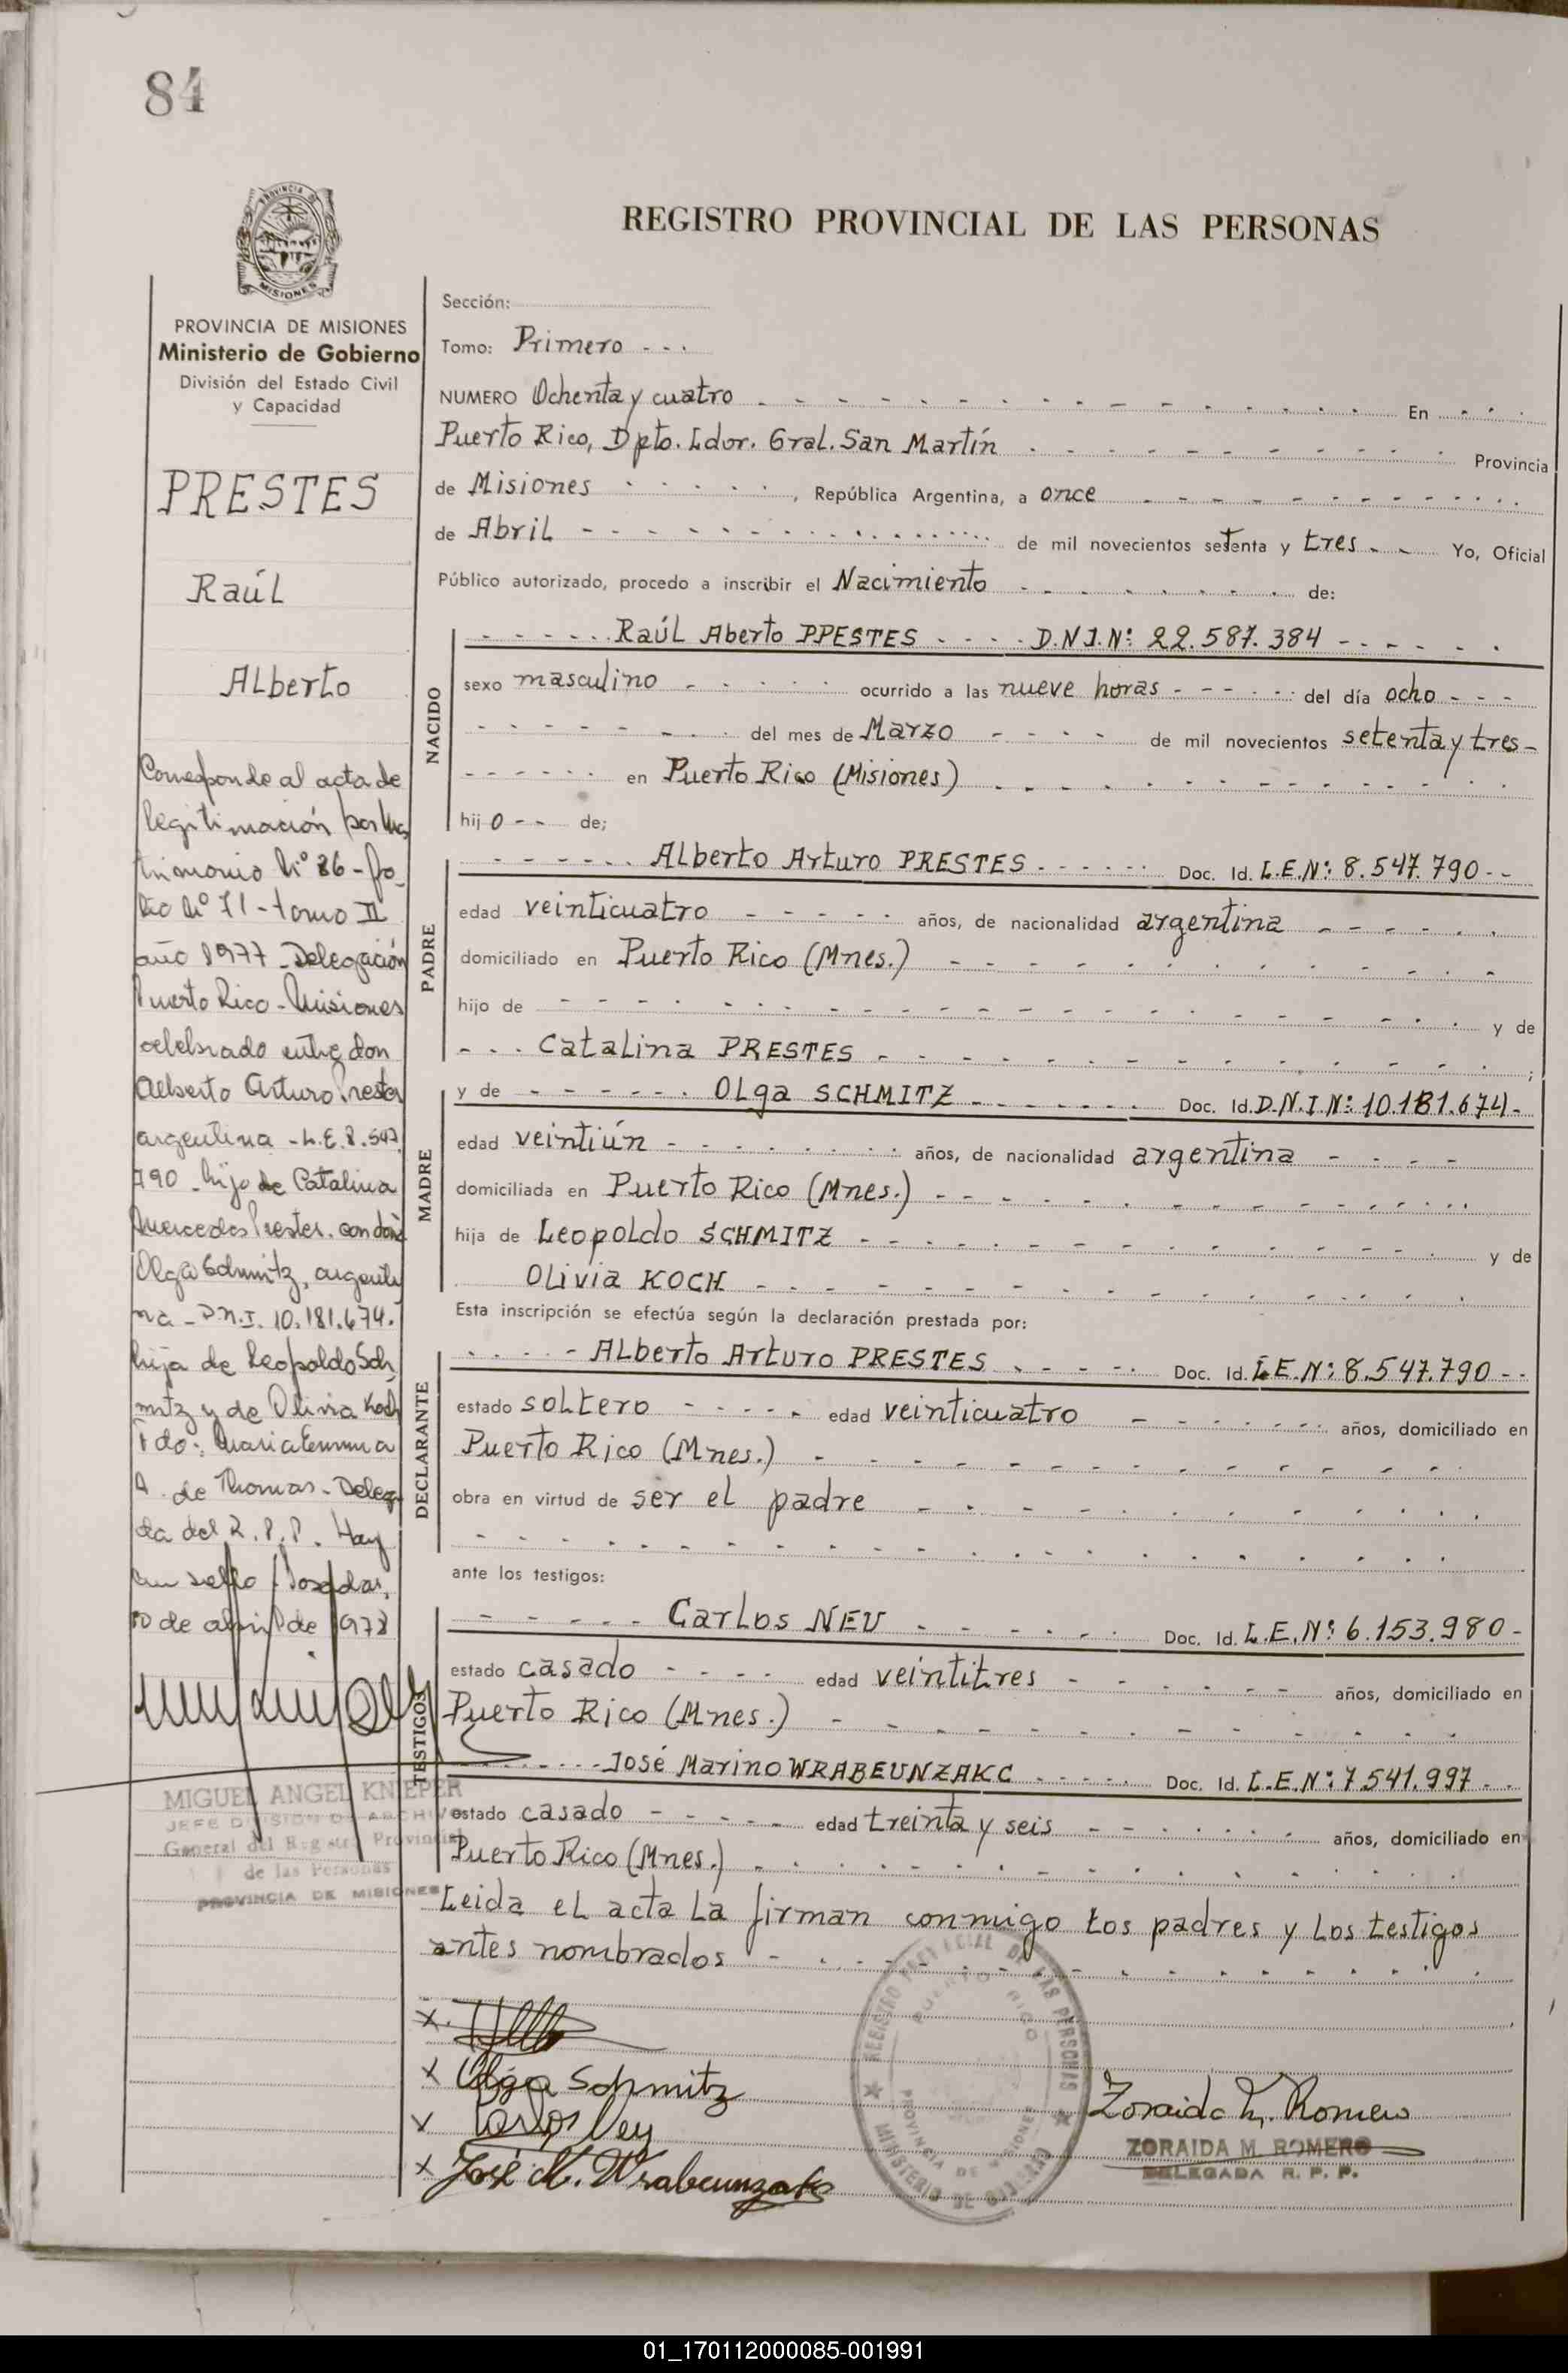 84
PROVINCIA
MISIONES
REGISTRO PROVINCIAL DE LAS PERSONAS
PROVINCIA DE MISIONES
Ministerio de Gobierno
División del Estado Civil
y Capacidad
PRESTES
Raúl
Alberto
Corresponde al acta de
legitimación por ma
trimonio Nº 86 - fo_
lio Nº 71 - tomo II
año 1977 - Delegación
Puerto Rico - Misiones
celebrado entre don
Alberto Arturo Prestes
argentina - L.E. 8.547
790 - hijo de Catalina
Mercedes Prestes. con doña
Olga Schmitz, argenti
na - D.N.I. 10.181.674.
hija de Leopoldo Sch
mitz y de Olivia Koch
Fdo: Maria Emma
A. de Thomas - Delega
da del R.P.P. Hay
un sello / Posadas,
10 de abril de 1978
MIGUEL ANGEL KNIEPER
JEFE DIVISION DE ARCHIVO
General del Registro Provincial
de las Personas
PROVINCIA DE MISIONES
Sección:
Tomo: Primero - - -
NUMERO Ochenta y cuatro - - - En - - -
Puerto Rico, Dpto. Ldor. Gral. San Martín - - - Provincia
de Misiones - - - , República Argentina, a once - - -
de Abril - - - de mil novecientos setenta y tres - - Yo, Oficial
Público autorizado, procedo a inscribir el Nacimiento - - - de:
NACIDO
- - - Raúl Aberto PPESTES - - - D.N.I.Nº: 22.587.384 - - -
sexo masculino - - - ocurrido a las nueve horas - - - del día ocho - - -
- - - del mes de Marzo - - - de mil novecientos setenta y tres -
- - - en Puerto Rico (Misiones) - - -
hij o - - de;
PADRE
- - - Alberto Arturo PRESTES - - - Doc. Id. L.E.Nº: 8.547.790 - -
edad veinticuatro - - - años, de nacionalidad argentina - - -
domiciliado en Puerto Rico (Mnes.) - - -
hijo de - - - y de
- - - Catalina PRESTES - - - ;
MADRE
y de - - - Olga SCHMITZ - - - Doc. Id. D.N.I Nº: 10.181.674 -
edad veintiún - - - años, de nacionalidad argentina - - -
domiciliada en Puerto Rico (Mnes.) - - -
hija de Leopoldo SCHMITZ - - - y de
Olivia KOCH - - -
Esta inscripción se efectúa según la declaración prestada por:
DECLARANTE
- - - Alberto Arturo PRESTES - - - Doc. Id. L.E.Nº: 8.547.790 - -
estado soltero - - - edad veinticuatro - - - años, domiciliado en
Puerto Rico (Mnes.) - - -
obra en virtud de ser el padre - - -
- - -
ante los testigos:
TESTIGOS
- - - Carlos NEU - - - Doc. Id. L.E.Nº: 6.153.980 -
estado casado - - - edad veintitres - - - años, domiciliado en
Puerto Rico (Mnes.) - - -
- - - José Marino WRABEUNZAKC - - - Doc. Id. L.E.Nº: 7.541.997 - -
estado casado - - - edad treinta y seis - - - años, domiciliado en
Puerto Rico (Mnes.) - - -
Leida el acta la firman conmigo los padres y los testigos
antes nombrados - - -
x
x Olga Schmitz
x Carlos Ney
x José M. Wrabeunzakc
REGISTRO PROVINCIAL DE LAS PERSONAS
PUERTO RICO
PROVINCIA DE MISIONES
MINISTERIO DE GOBIERNO
Zoraida M. Romero
ZORAIDA M. ROMERO
DELEGADA R. P. P.
01_170112000085-001991